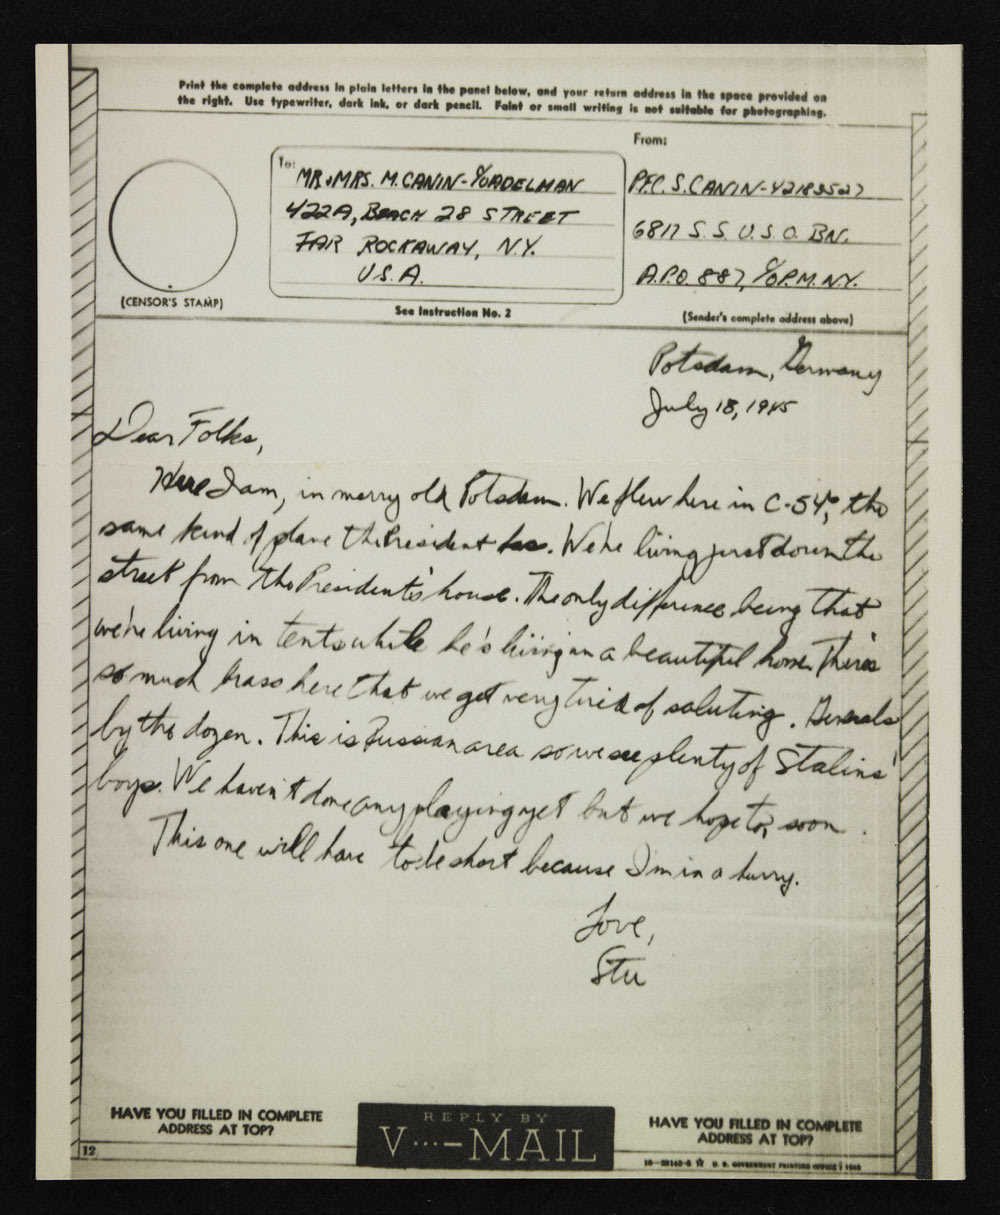 Print the complete address in plain letters in the panel below, and your return address in the space provided on
the right. Use typewriter, dark ink, or dark pencil. Faint or small writing is not suitable for photographing.
To:
MR. & MRS. M. CANIN - c/o ADELMAN
422A, BEACH 28 STREET
FAR ROCKAWAY, N.Y.
U.S.A.
From:
PFC. S. CANIN - 42183527
6817 S.S. U.S.O. BN.
A.P.O. 887, c/o P.M. N.Y.
(CENSOR'S STAMP)
See Instruction No. 2
(Sender's complete address above)
Potsdam, Germany
July 18, 1945
Dear Folks,
Here I am, in merry old Potsdam. We flew here in C-54's, the
same kind of plane the President has. We're living just down the
street from the President's house. The only difference being that
we're living in tents while he's living in a beautiful home. There's
so much brass here that we get very tired of saluting. Generals
by the dozen. This is Russian area so we see plenty of Stalins'
boys. We haven't done any playing yet but we hope to, soon.
This one will have to be short because I'm in a hurry.
Love,
Stu
HAVE YOU FILLED IN COMPLETE
ADDRESS AT TOP?
REPLY BY
V···—MAIL
HAVE YOU FILLED IN COMPLETE
ADDRESS AT TOP?
12
U. S. GOVERNMENT PRINTING OFFICE